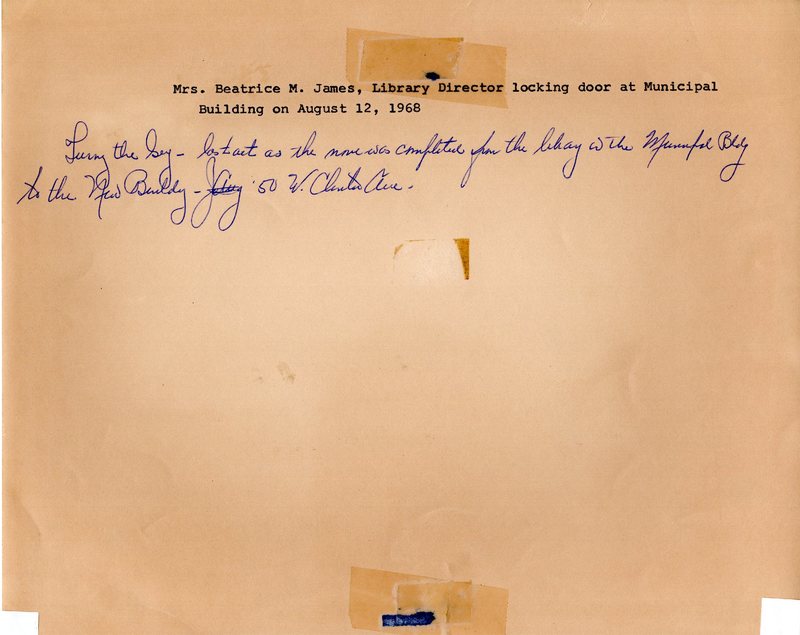 Mrs. Beatrice M. James, Library Director locking door at Municipal
Building on August 12, 1968
Turng the key - last act as the move was completed from the library in the Municipal Bldg
to the New Building - 50 W. Clinton Ave.